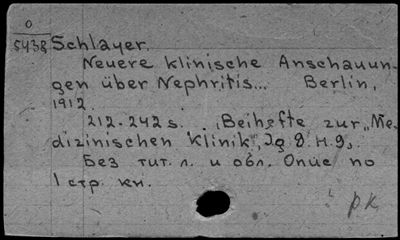 0
5438 Schlayer.
Neuere klinische Anschauun-
gen über Nephritis... Berlin,
1912.
212-242 s. (Beihefte zur „Me-
dizinischen Klinik", Jg. 8. H. 9).
Без тит. л. и обл. Опис по
1 стр. кн.
рк